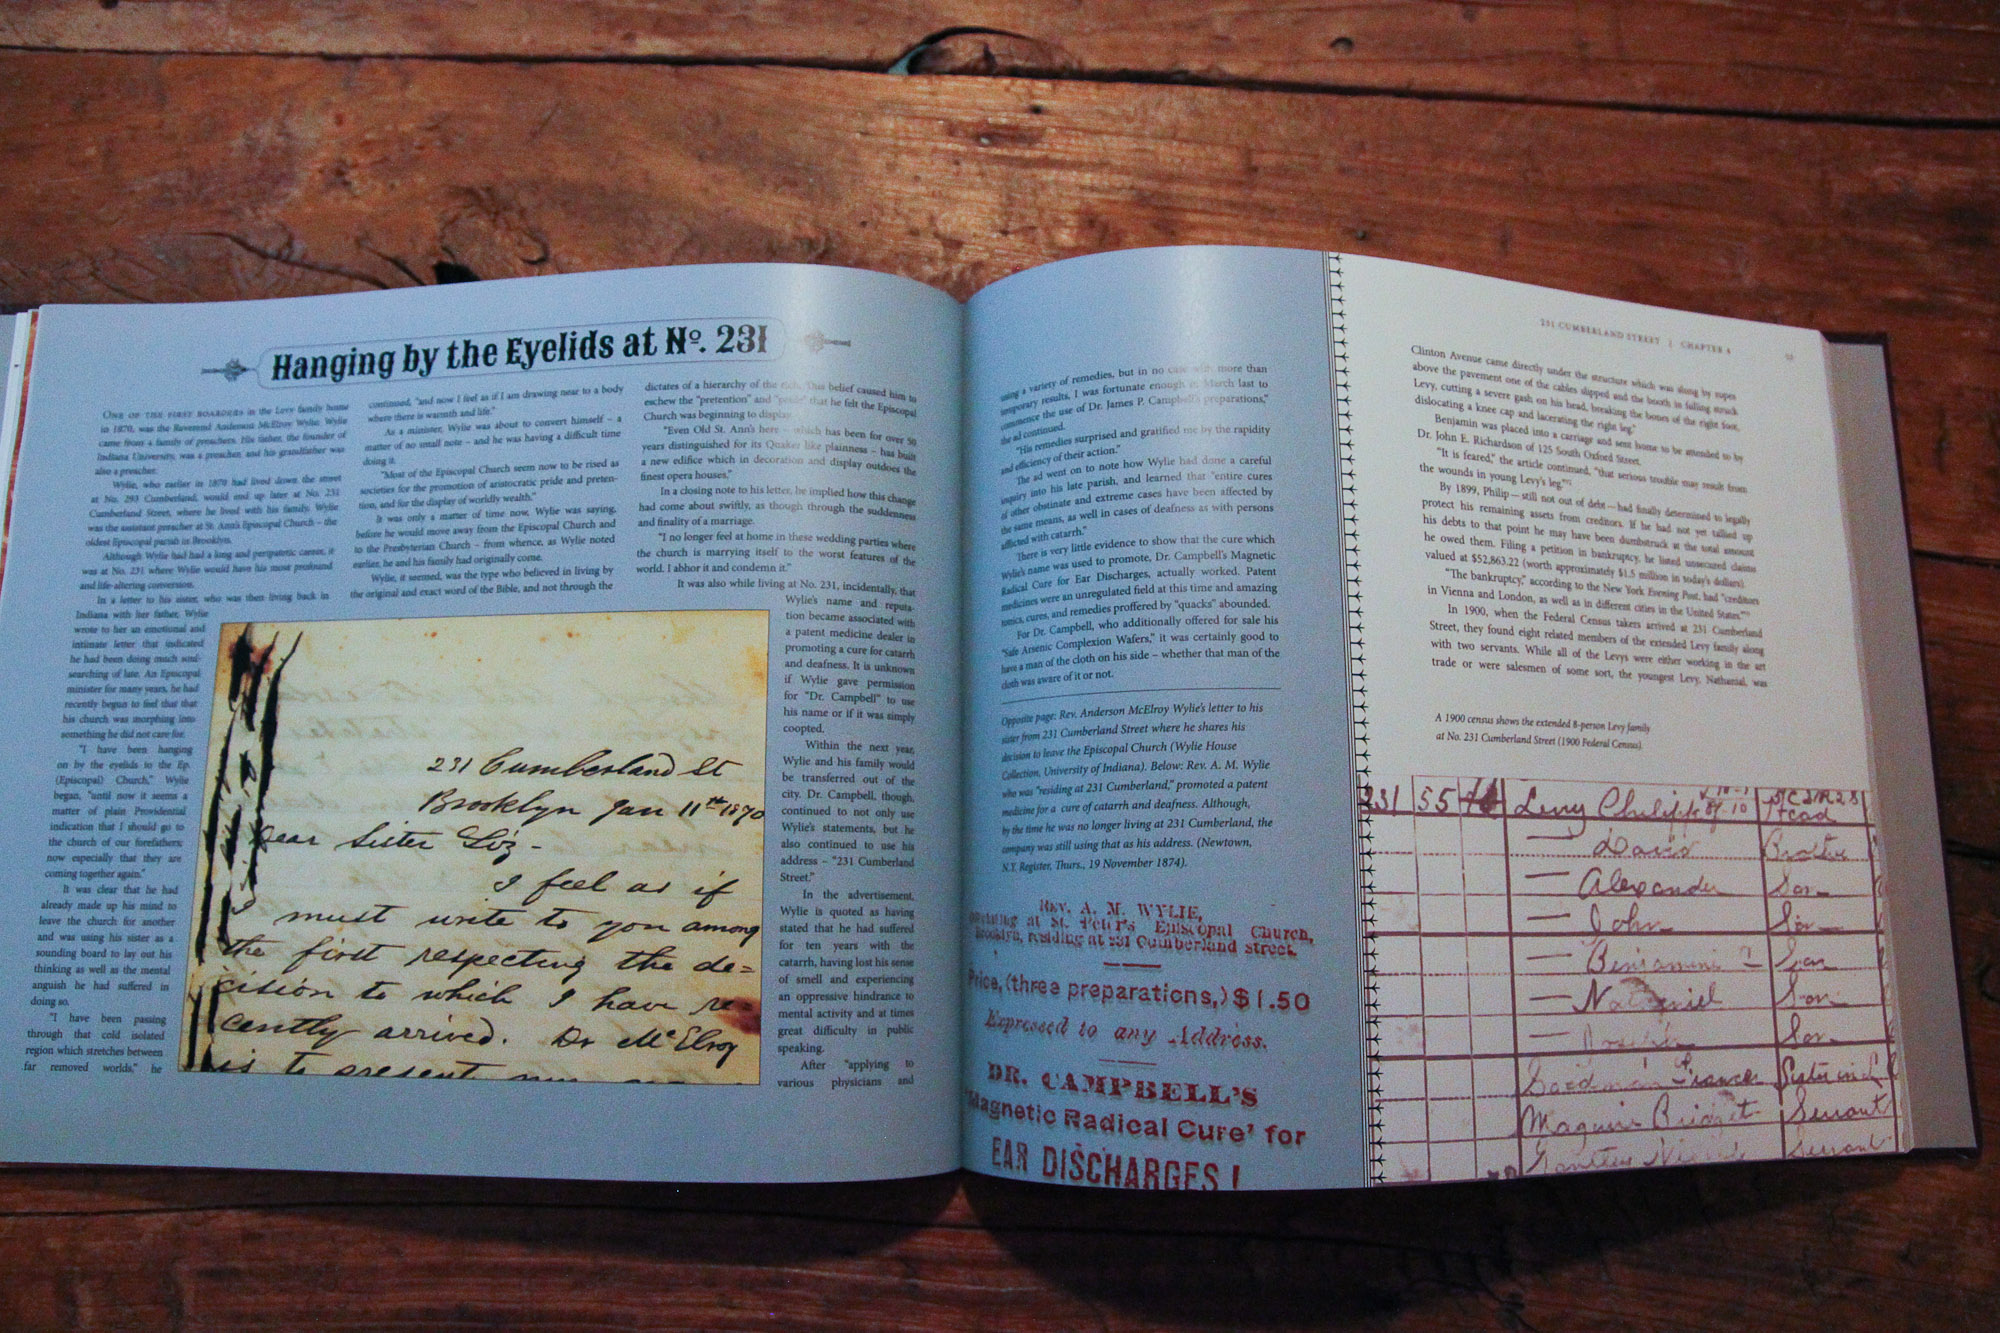 Hanging by the Eyelids at Nº. 231
ONE OF THE FIRST BOARDERS in the Levy family home
in 1870, was the Reverend Anderson McElroy Wylie. Wylie
came from a family of preachers. His father, the founder of
Indiana University, was a preacher, and his grandfather was
also a preacher.
Wylie, who earlier in 1870 had lived down the street
at No. 293 Cumberland, would end up later at No. 231
Cumberland Street, where he lived with his family. Wylie
was the assistant preacher at St. Ann's Episcopal Church – the
oldest Episcopal parish in Brooklyn.
Although Wylie had had a long and peripatetic career, it
was at No. 231 where Wylie would have his most profound
and life-altering conversion.
In a letter to his sister, who was then living back in
Indiana with her father, Wylie
wrote to her an emotional and
intimate letter that indicated
he had been doing much soul-
searching of late. An Episcopal
minister for many years, he had
recently begun to feel that that
his church was morphing into
something he did not care for.
"I have been hanging
on by the eyelids to the Ep.
(Episcopal) Church," Wylie
began, "until now it seems a
matter of plain Providential
indication that I should go to
the church of our forefathers;
now especially that they are
coming together again."
It was clear that he had
already made up his mind to
leave the church for another
and was using his sister as a
sounding board to lay out his
thinking as well as the mental
anguish he had suffered in
doing so.
"I have been passing
through that cold isolated
region which stretches between
far removed worlds," he
continued, "and now I feel as if I am drawing near to a body
where there is warmth and life."
As a minister, Wylie was about to convert himself – a
matter of no small note – and he was having a difficult time
doing it.
"Most of the Episcopal Church seem now to be rised as
societies for the promotion of aristocratic pride and preten-
tion, and for the display of worldly wealth."
It was only a matter of time now, Wylie was saying,
before he would move away from the Episcopal Church and
to the Presbyterian Church – from whence, as Wylie noted
earlier, he and his family had originally come.
Wylie, it seemed, was the type who believed in living by
the original and exact word of the Bible, and not through the
dictates of a hierarchy of the rich. This belief caused him to
eschew the "pretention" and "pride" that he felt the Episcopal
Church was beginning to display.
"Even Old St. Ann's here – which has been for over 50
years distinguished for its Quaker like plainness – has built
a new edifice which in decoration and display outdoes the
finest opera houses."
In a closing note to his letter, he implied how this change
had come about swiftly, as though through the suddenness
and finality of a marriage.
"I no longer feel at home in these wedding parties where
the church is marrying itself to the worst features of the
world. I abhor it and condemn it."
It was also while living at No. 231, incidentally, that
Wylie's name and reputa-
tion became associated with
a patent medicine dealer in
promoting a cure for catarrh
and deafness. It is unknown
if Wylie gave permission
for "Dr. Campbell" to use
his name or if it was simply
coopted.
Within the next year,
Wylie and his family would
be transferred out of the
city. Dr. Campbell, though,
continued to not only use
Wylie's statements, but he
also continued to use his
address – "231 Cumberland
Street."
In the advertisement,
Wylie is quoted as having
stated that he had suffered
for ten years with the
catarrh, having lost his sense
of smell and experiencing
an oppressive hindrance to
mental activity and at times
great difficulty in public
speaking.
After "applying to
various physicians and
231 Cumberland St
Brooklyn Jan 11th 1870
Dear Sister Liz -
I feel as if
I must write to you among
the first respecting the de=
cision to which I have re=
cently arrived. Dr McElroy
is to present
using a variety of remedies, but in no case with more than
temporary results, I was fortunate enough in March last to
commence the use of Dr. James P. Campbell's preparations,"
the ad continued.
"His remedies surprised and gratified me by the rapidity
and efficiency of their action."
The ad went on to note how Wylie had done a careful
inquiry into his late parish, and learned that "entire cures
of other obstinate and extreme cases have been affected by
the same means, as well in cases of deafness as with persons
afflicted with catarrh."
There is very little evidence to show that the cure which
Wylie's name was used to promote, Dr. Campbell's Magnetic
Radical Cure for Ear Discharges, actually worked. Patent
medicines were an unregulated field at this time and amazing
tonics, cures, and remedies proffered by "quacks" abounded.
For Dr. Campbell, who additionally offered for sale his
"Safe Arsenic Complexion Wafers," it was certainly good to
have a man of the cloth on his side – whether that man of the
cloth was aware of it or not.
Opposite page: Rev. Anderson McElroy Wylie's letter to his
sister from 231 Cumberland Street where he shares his
decision to leave the Episcopal Church (Wylie House
Collection, University of Indiana). Below: Rev. A. M. Wylie
who was "residing at 231 Cumberland," promoted a patent
medicine for a cure of catarrh and deafness. Although,
by the time he was no longer living at 231 Cumberland, the
company was still using that as his address. (Newtown,
N.Y. Register, Thurs., 19 November 1874).
REV. A. M. WYLIE,
Officiating at St. Peter's Episcopal Church,
Brooklyn, residing at 231 Cumberland street.
Price, (three preparations,) $1.50
Expressed to any Address.
DR. CAMPBELL'S
'Magnetic Radical Cure' for
EAR DISCHARGES!
231 CUMBERLAND STREET | CHAPTER 4
Clinton Avenue came directly under the structure which was slung by ropes
above the pavement one of the cables slipped and the booth in falling struck
Levy, cutting a severe gash on his head, breaking the bones of the right foot,
dislocating a knee cap and lacerating the right leg."
Benjamin was placed into a carriage and sent home to be attended to by
Dr. John E. Richardson of 125 South Oxford Street.
"It is feared," the article continued, "that serious trouble may result from
the wounds in young Levy's leg."
By 1899, Philip — still not out of debt — had finally determined to legally
protect his remaining assets from creditors. If he had not yet tallied up
his debts to that point he may have been dumbstruck at the total amount
he owed them. Filing a petition in bankruptcy, he listed unsecured claims
valued at $52,863.22 (worth approximately $1.5 million in today's dollars).
"The bankruptcy," according to the New York Evening Post, had "creditors
in Vienna and London, as well as in different cities in the United States."
In 1900, when the Federal Census takers arrived at 231 Cumberland
Street, they found eight related members of the extended Levy family along
with two servants. While all of the Levys were either working in the art
trade or were salesmen of some sort, the youngest Levy, Nathanial, was
A 1900 census shows the extended 8-person Levy family
at No. 231 Cumberland Street (1900 Federal Census).
231 55 Levy Philipp Head
— David Brother
— Alexander Son
— John Son
— Benjamin Son
— Nathaniel Son
— Joseph Son
Goodman Frances Sister in L
Maguire Bridget Servant
Servant